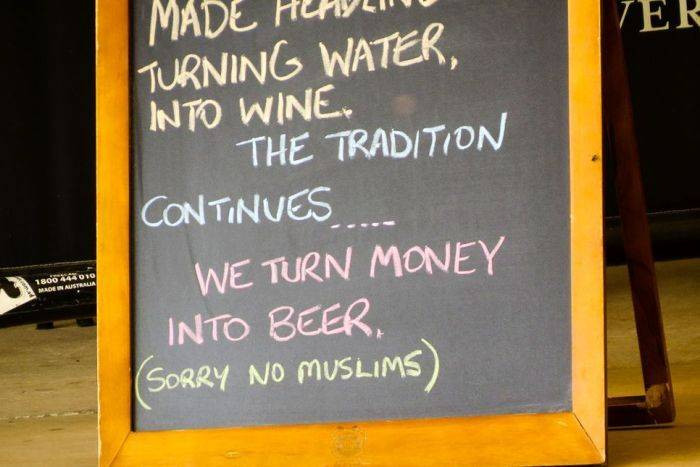 MADE
TURNING WATER,
INTO WINE.
THE TRADITION
CONTINUES.....
WE TURN MONEY
INTO BEER.
(SORRY NO MUSLIMS)
1800 444 010
MADE IN AUSTRALIA
VER